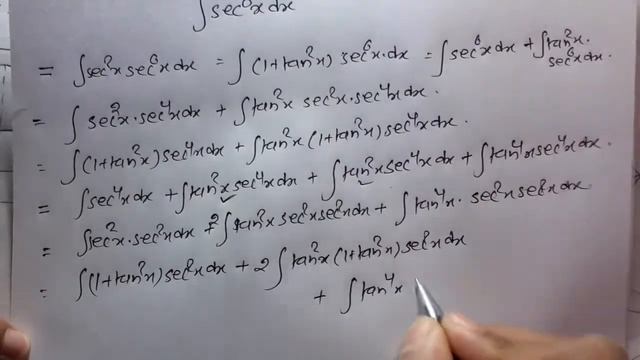 ∫sec⁸x dx
= ∫sec²x sec⁶x dx = ∫(1+tan²x) sec⁶x·dx = ∫sec⁶x dx + ∫tan²x· sec⁶x dx.
= ∫sec²x·sec⁴x dx + ∫tan²x sec²x·sec⁴x dx.
= ∫(1+tan²x) sec⁴x dx + ∫tan²x (1+tan²x) sec⁴x dx.
= ∫sec⁴x dx + ∫tan²x sec⁴x dx + ∫tan²x sec⁴x dx + ∫tan⁴x sec⁴x dx.
= ∫sec²x·sec²x dx + 2∫tan²x sec²x sec²x dx + ∫tan⁴x· sec²x sec²x dx
= ∫(1+tan²x) sec²x dx + 2∫tan²x (1+tan²x) sec²x dx
+ ∫tan⁴x